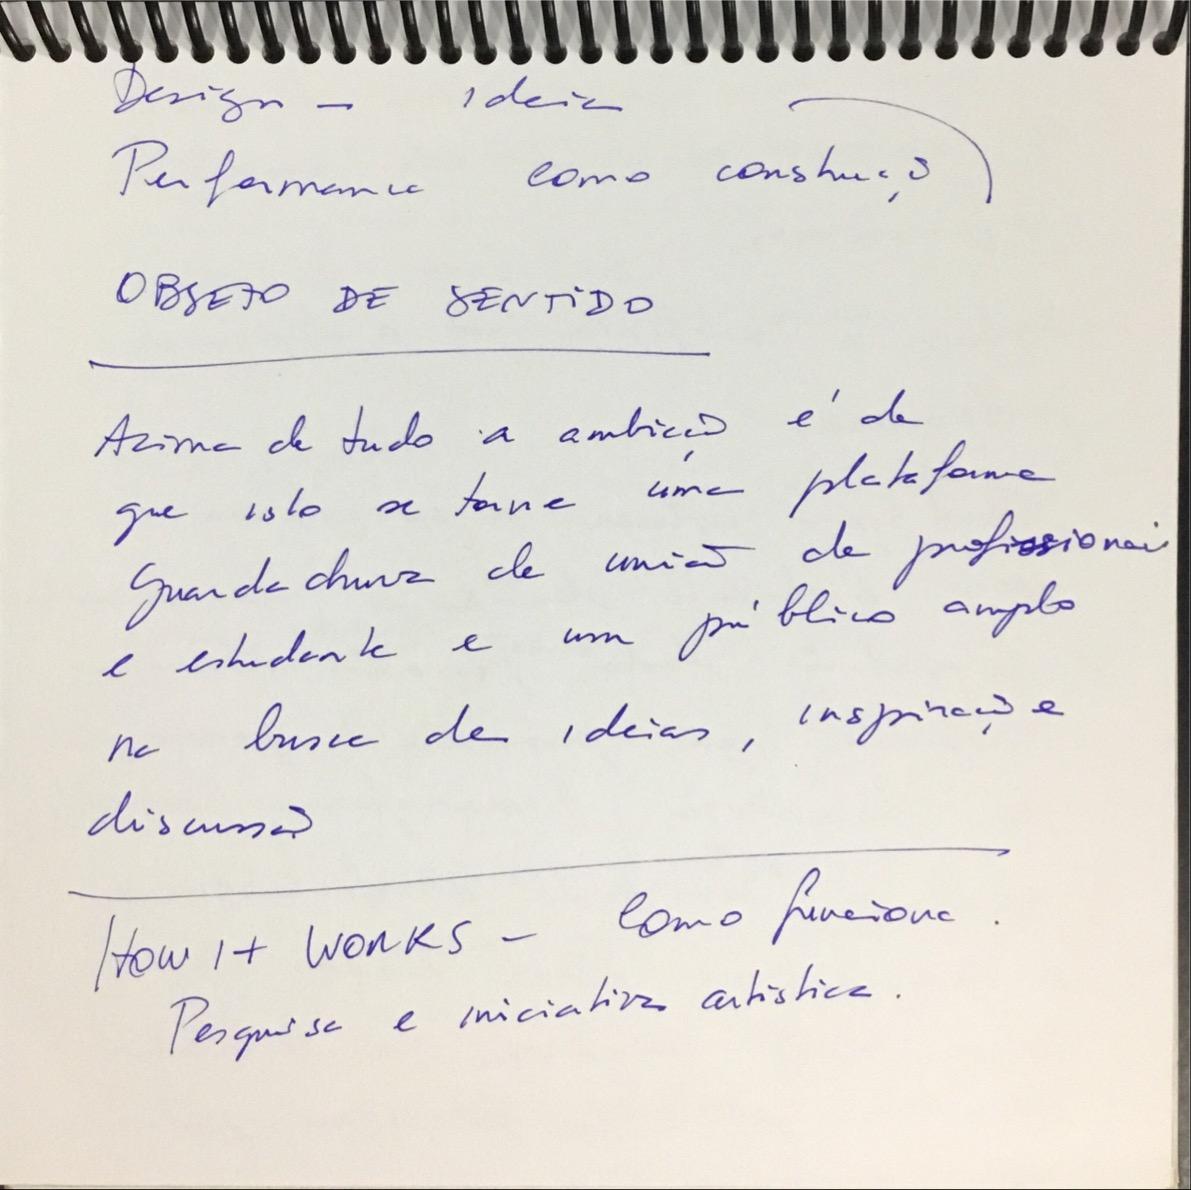 Design – ideia
Performance como construção
OBJETO DE SENTIDO
Acima de tudo a ambição é de
que isto se torne uma plataforma
Guarda chuva de união de profissionais
e estudante e um público amplo
na busca de ideias, inspiração e
discussão
HOW IT WORKS – Como funciona.
Pesquisa e iniciativa artistica.